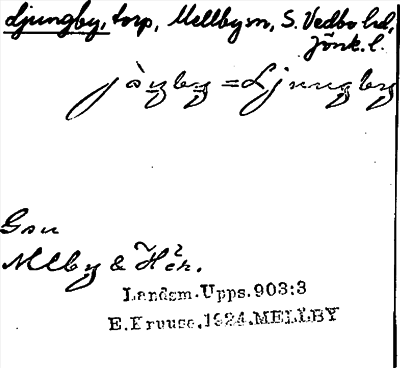 Ljungby, torp, Mellby sn, S. Vedbo hd,
Jönk. l.
= Ljungby
Gsn
Mlby & Här.
Landsm. Upps. 903:3
E. Kruuse. 1924. MELLBY